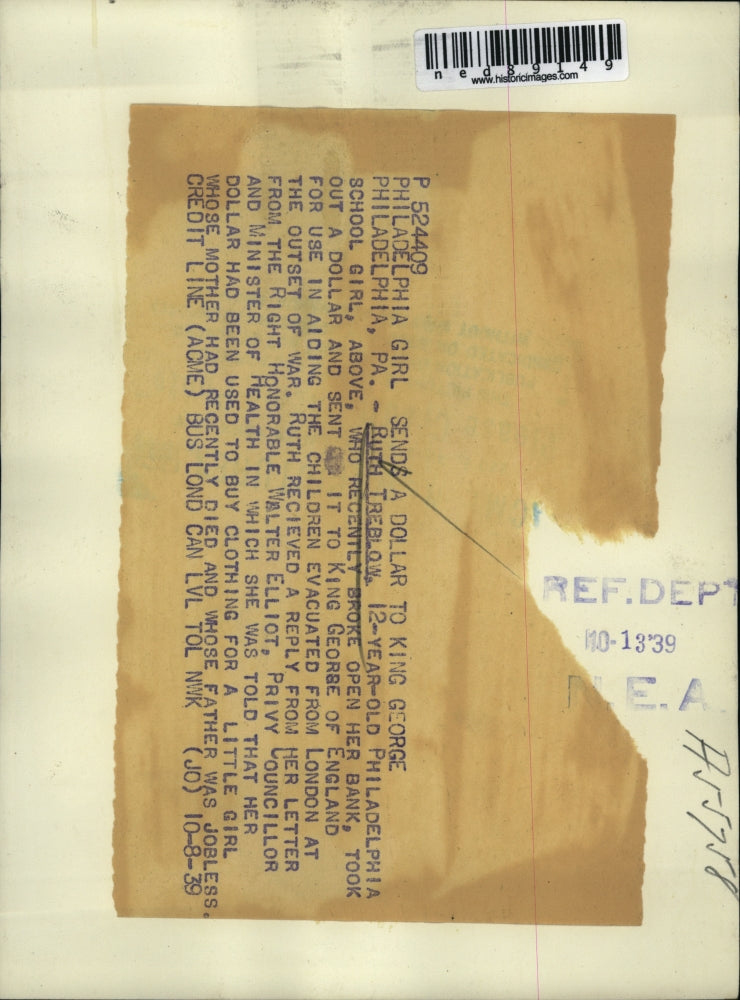 ned89149
www.historicimages.com
P 524409
PHILADELPHIA GIRL SENDS A DOLLAR TO KING GEORGE
PHILADELPHIA, PA. - RUTH TREBLOW, 12-YEAR-OLD PHILADELPHIA
SCHOOL GIRL, ABOVE, WHO RECENTLY BROKE OPEN HER BANK, TOOK
OUT A DOLLAR AND SENT IT TO KING GEORGE OF ENGLAND
FOR USE IN AIDING THE CHILDREN EVACUATED FROM LONDON AT
THE OUTSET OF WAR. RUTH RECIEVED A REPLY FROM HER LETTER
FROM THE RIGHT HONORABLE WALTER ELLIOT, PRIVY COUNCILLOR
AND MINISTER OF HEALTH IN WHICH SHE WAS TOLD THAT HER
DOLLAR HAD BEEN USED TO BUY CLOTHING FOR A LITTLE GIRL
WHOSE MOTHER HAD RECENTLY DIED AND WHOSE FATHER WAS JOBLESS.
CREDIT LINE (ACME) BUS LOND CAN LVL TOL NWK (JO) 10-8-39
REF.DEPT
10-13'39
N.E.A.